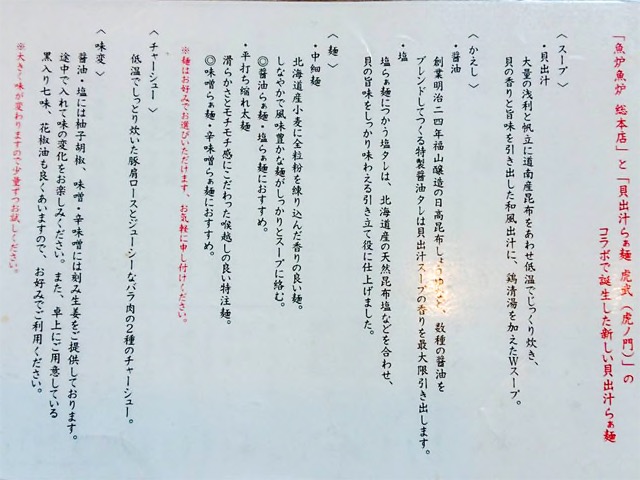 「魚炉魚炉 総本店」と「貝出汁らぁ麺 虎武（虎ノ門）」の
コラボで誕生した新しい貝出汁らぁ麺
〈スープ〉
・貝出汁
大量の浅利と帆立に道南産昆布をあわせ低温でじっくり炊き、
貝の香りと旨味を引き出した和風出汁に、鶏清湯を加えたWスープ。
〈かえし〉
・醤油
創業明治二四年福山醸造の日高昆布しょうゆと、数種の醤油を
ブレンドしてつくる特製醤油タレは貝出汁スープの香りを最大限引き出します。
・塩
塩らぁ麺につかう塩タレは、北海道産の天然昆布塩などを合わせ、
貝の旨味をしっかり味わえる引き立て役に仕上げました。
〈麺〉
・中細麺
北海道産小麦に全粒粉を練り込んだ香りの良い麺。
しなやかで風味豊かな麺がしっかりとスープに絡む。
◎醤油らぁ麺・塩らぁ麺におすすめ。
・平打ち縮れ太麺
滑らかさとモチモチ感にこだわった喉越しの良い特注麺。
◎味噌らぁ麺・辛味噌らぁ麺におすすめ。
※麺はお好みでお選びいただけます、お気軽に申し付けください。
〈チャーシュー〉
低温でしっとり炊いた豚肩ロースとジューシーなバラ肉の2種のチャーシュー。
〈味変〉
醤油・塩には柚子胡椒、味噌・辛味噌には刻み生姜をご提供しております。
途中で入れて味の変化をお楽しみください。また、卓上にご用意している
黒入り七味、花椒油も良くあいますので、お好みでご利用ください。
※大きく味が変わりますので少量ずつお試しください。